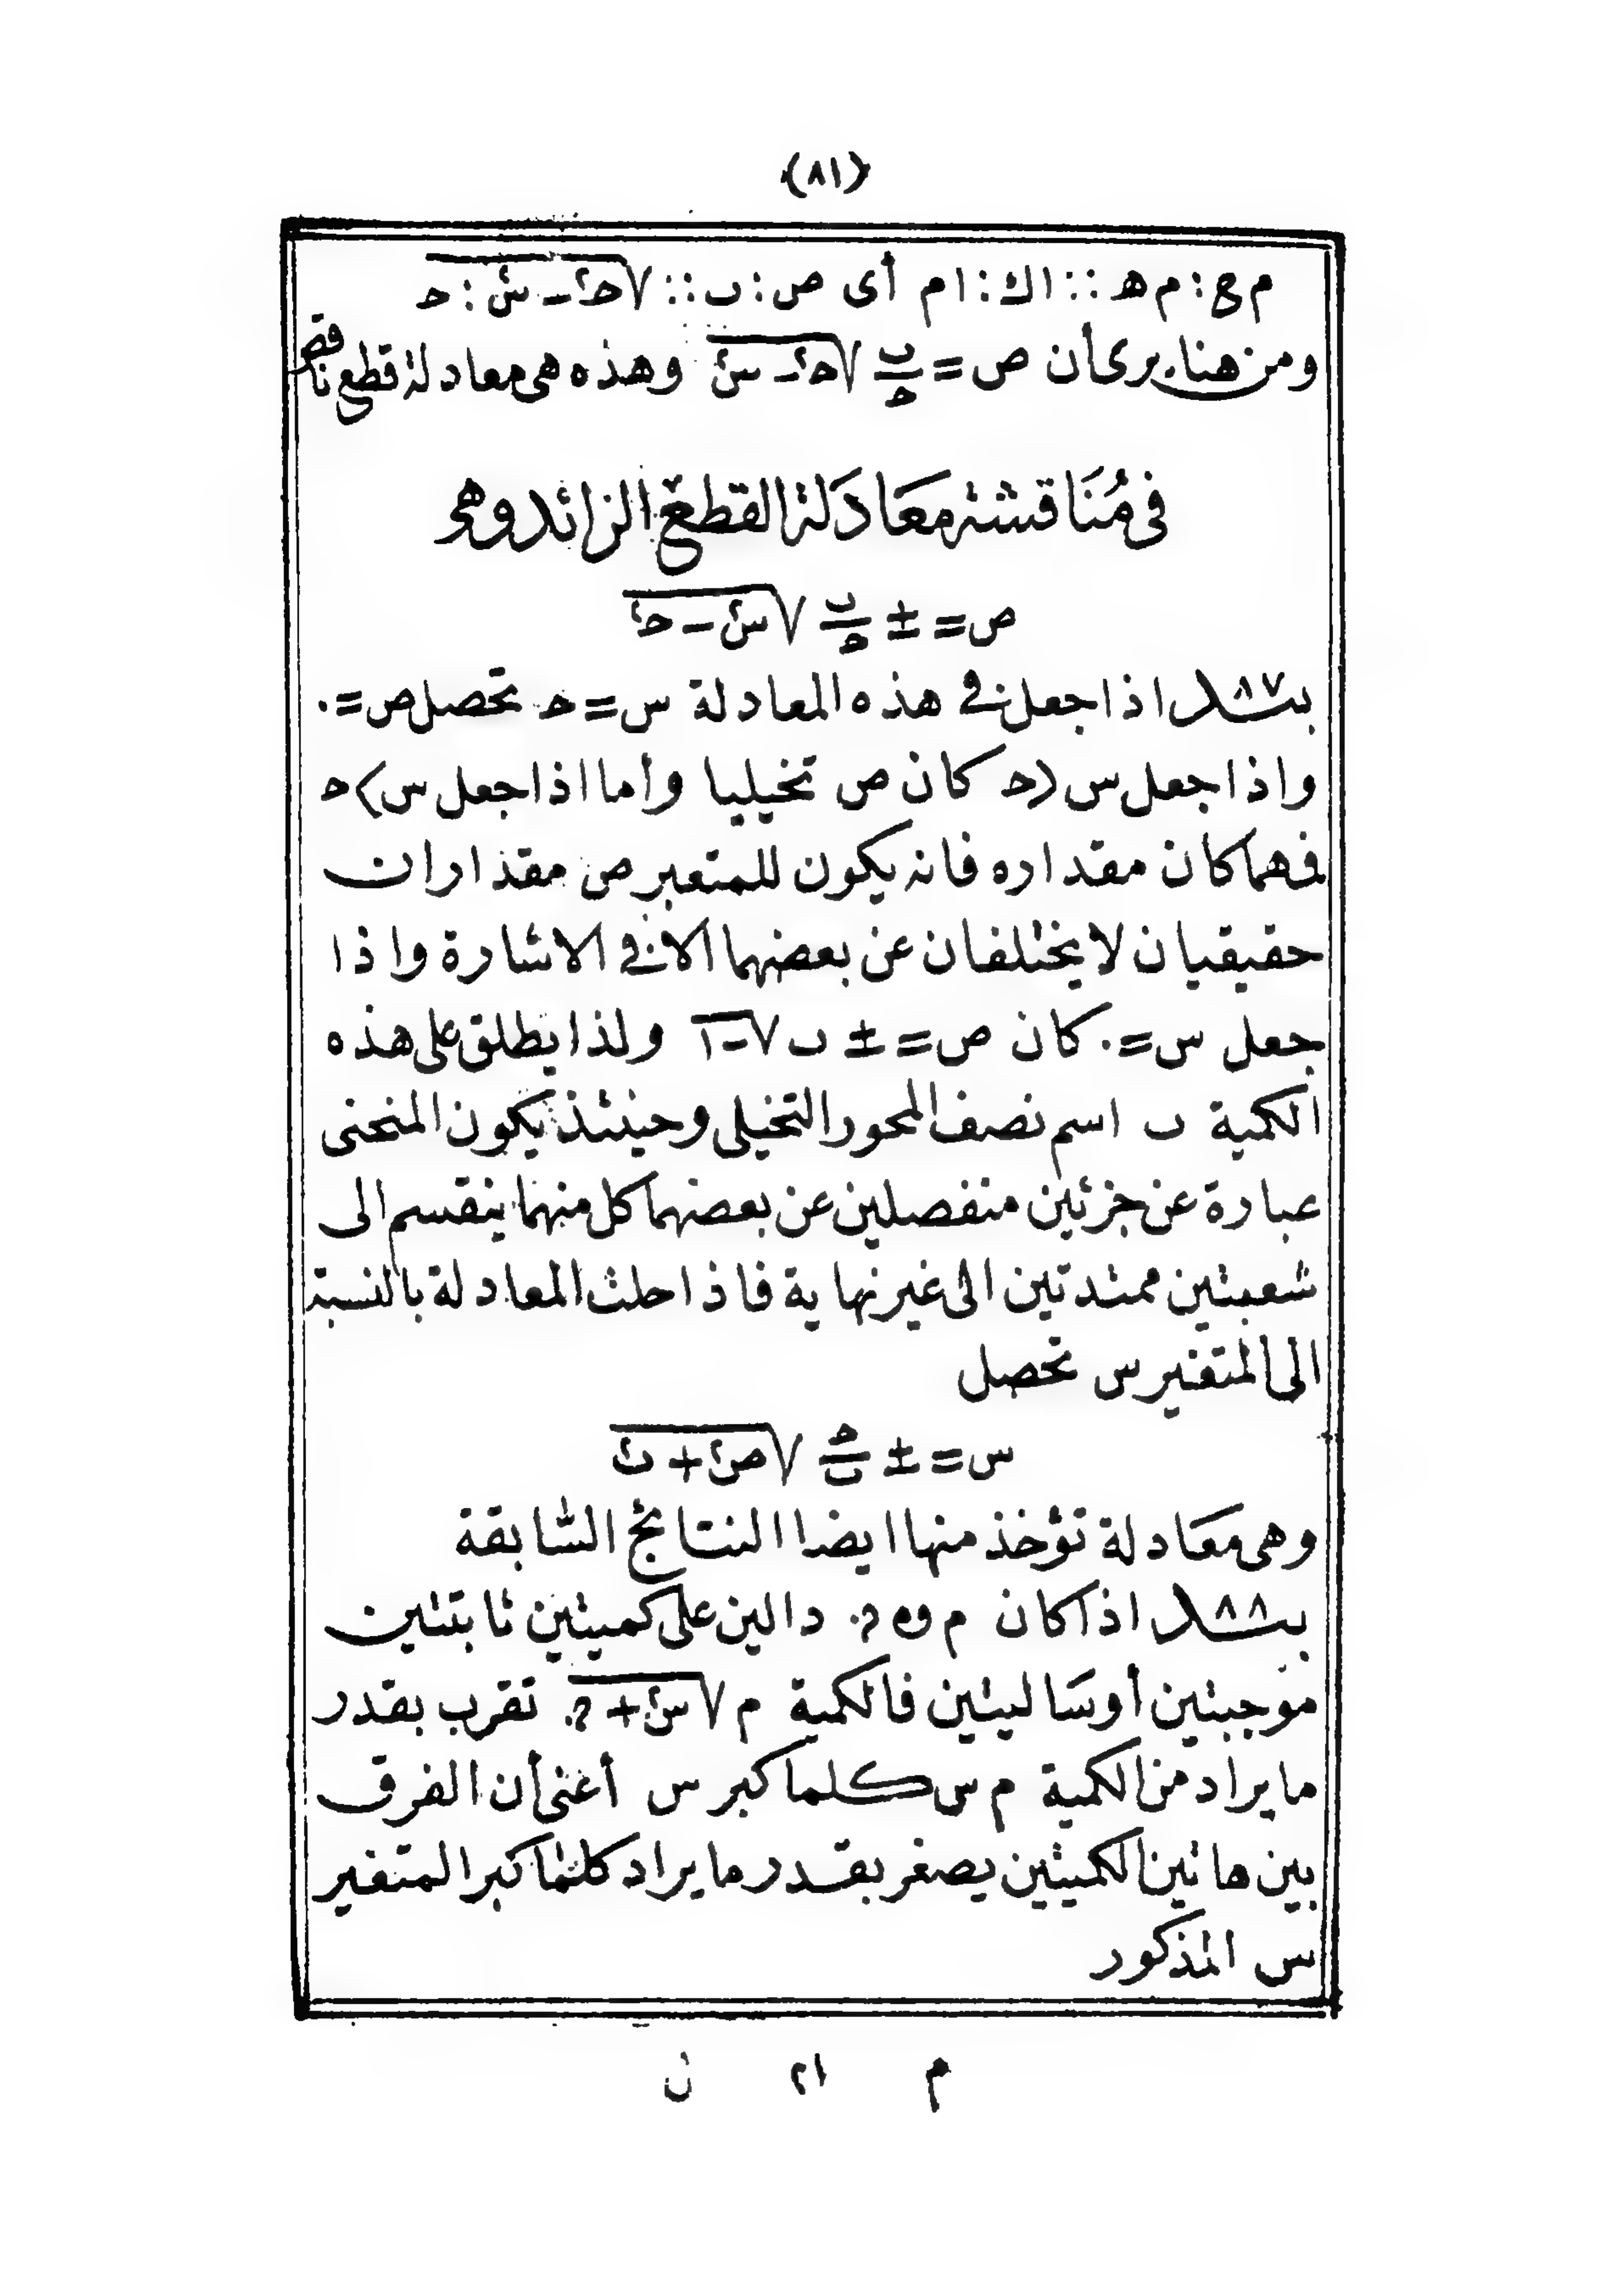 (٨١)
م ج : م ه :: ا ك : ا م أى ص : ب :: √(حـ٢ - س٢) : حـ
ومن هنا يرى أن ص = ب/حـ √(حـ٢ - س٢) وهذه هى معادلة قطع ناقص
فى مُنَاقشة مَعَادَلة القطع الزائد وهى
ص = ± ب/حـ √(س٢ - حـ٢)
بنـ٨٧ـد اذا جعل فى هذه المعادلة س = حـ تحصل ص = ٠
واذا جعل س < حـ كان ص تخيليا وأما اذا جعل س > حـ
فمهما كان مقداره فانه يكون للمتغير ص مقداران
حقيقيان لا يختلفان عن بعضهما الا فى الاشارة واذا
جعل س = ٠ كان ص = ± ب √-١ ولذا يطلق على هذه
الكمية ب اسم نصف المحور التخيلى وحينئذ يكون المنحنى
عبارة عن جزئين منفصلين عن بعضهما كل منهما ينقسم الى
شعبتين ممتدتين الى غير نهاية فاذا حلت المعادلة بالنسبة
الى المتغير س تحصل
س = ± حـ/ب √(ص٢ + ب٢)
وهى مَعَادلة تؤخذ منها ايضا النتائج السَّابقة
بنـ٨٨ـد اذا كان م و ه دالين على كميتين ثابتتين
موجبتين أو سَالبتين فالكمية م √(س٢ + ه) تقرب بقدر
ما يراد من الكمية م س كلما كبر س أعنى أن الفرق
بين هاتين الكميتين يصغر بقدر ما يراد كلما كبر المتغير
س المذكور
م ٢١ ن